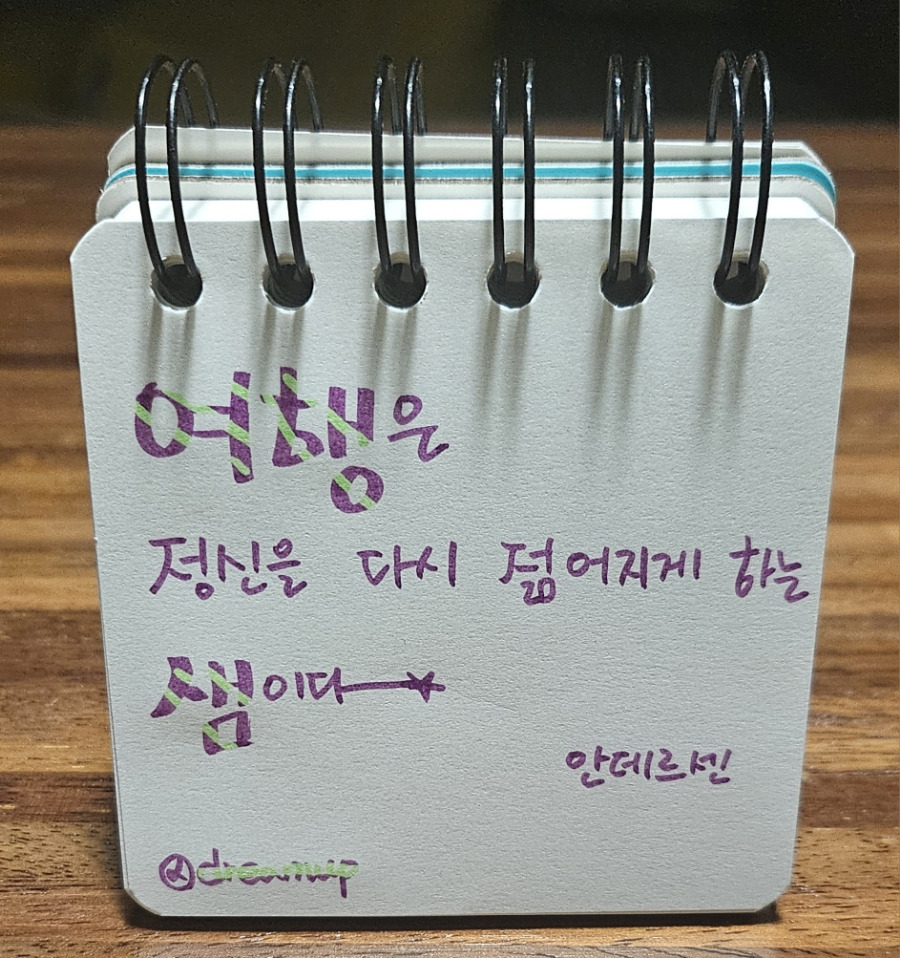 여행은
정신을 다시 젊어지게 하는
샘이다
안데르센
@dreamup